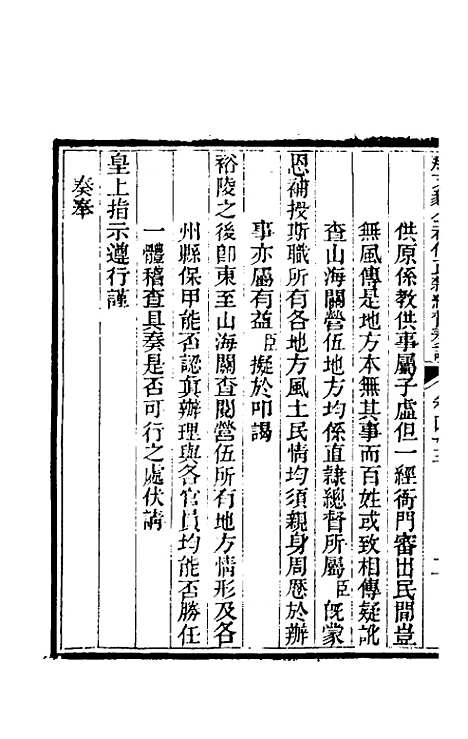 供原係教供事屬子虛但一經衙門審出民間豈
無風傳是地方本無其事而百姓或致相傳疑訛
查山海關營伍地方均係直隸總督所屬臣既蒙
恩補授斯職所有各地方風土民情均須親身周歷於辦
事亦屬有益臣擬於叩謁
裕陵之後卽東至山海關查閱營伍所有地方情形及各
州縣保甲能否認眞辦理與各官員均能否勝任
一體稽查具奏是否可行之處伏請
皇上指示遵行謹
奏奉